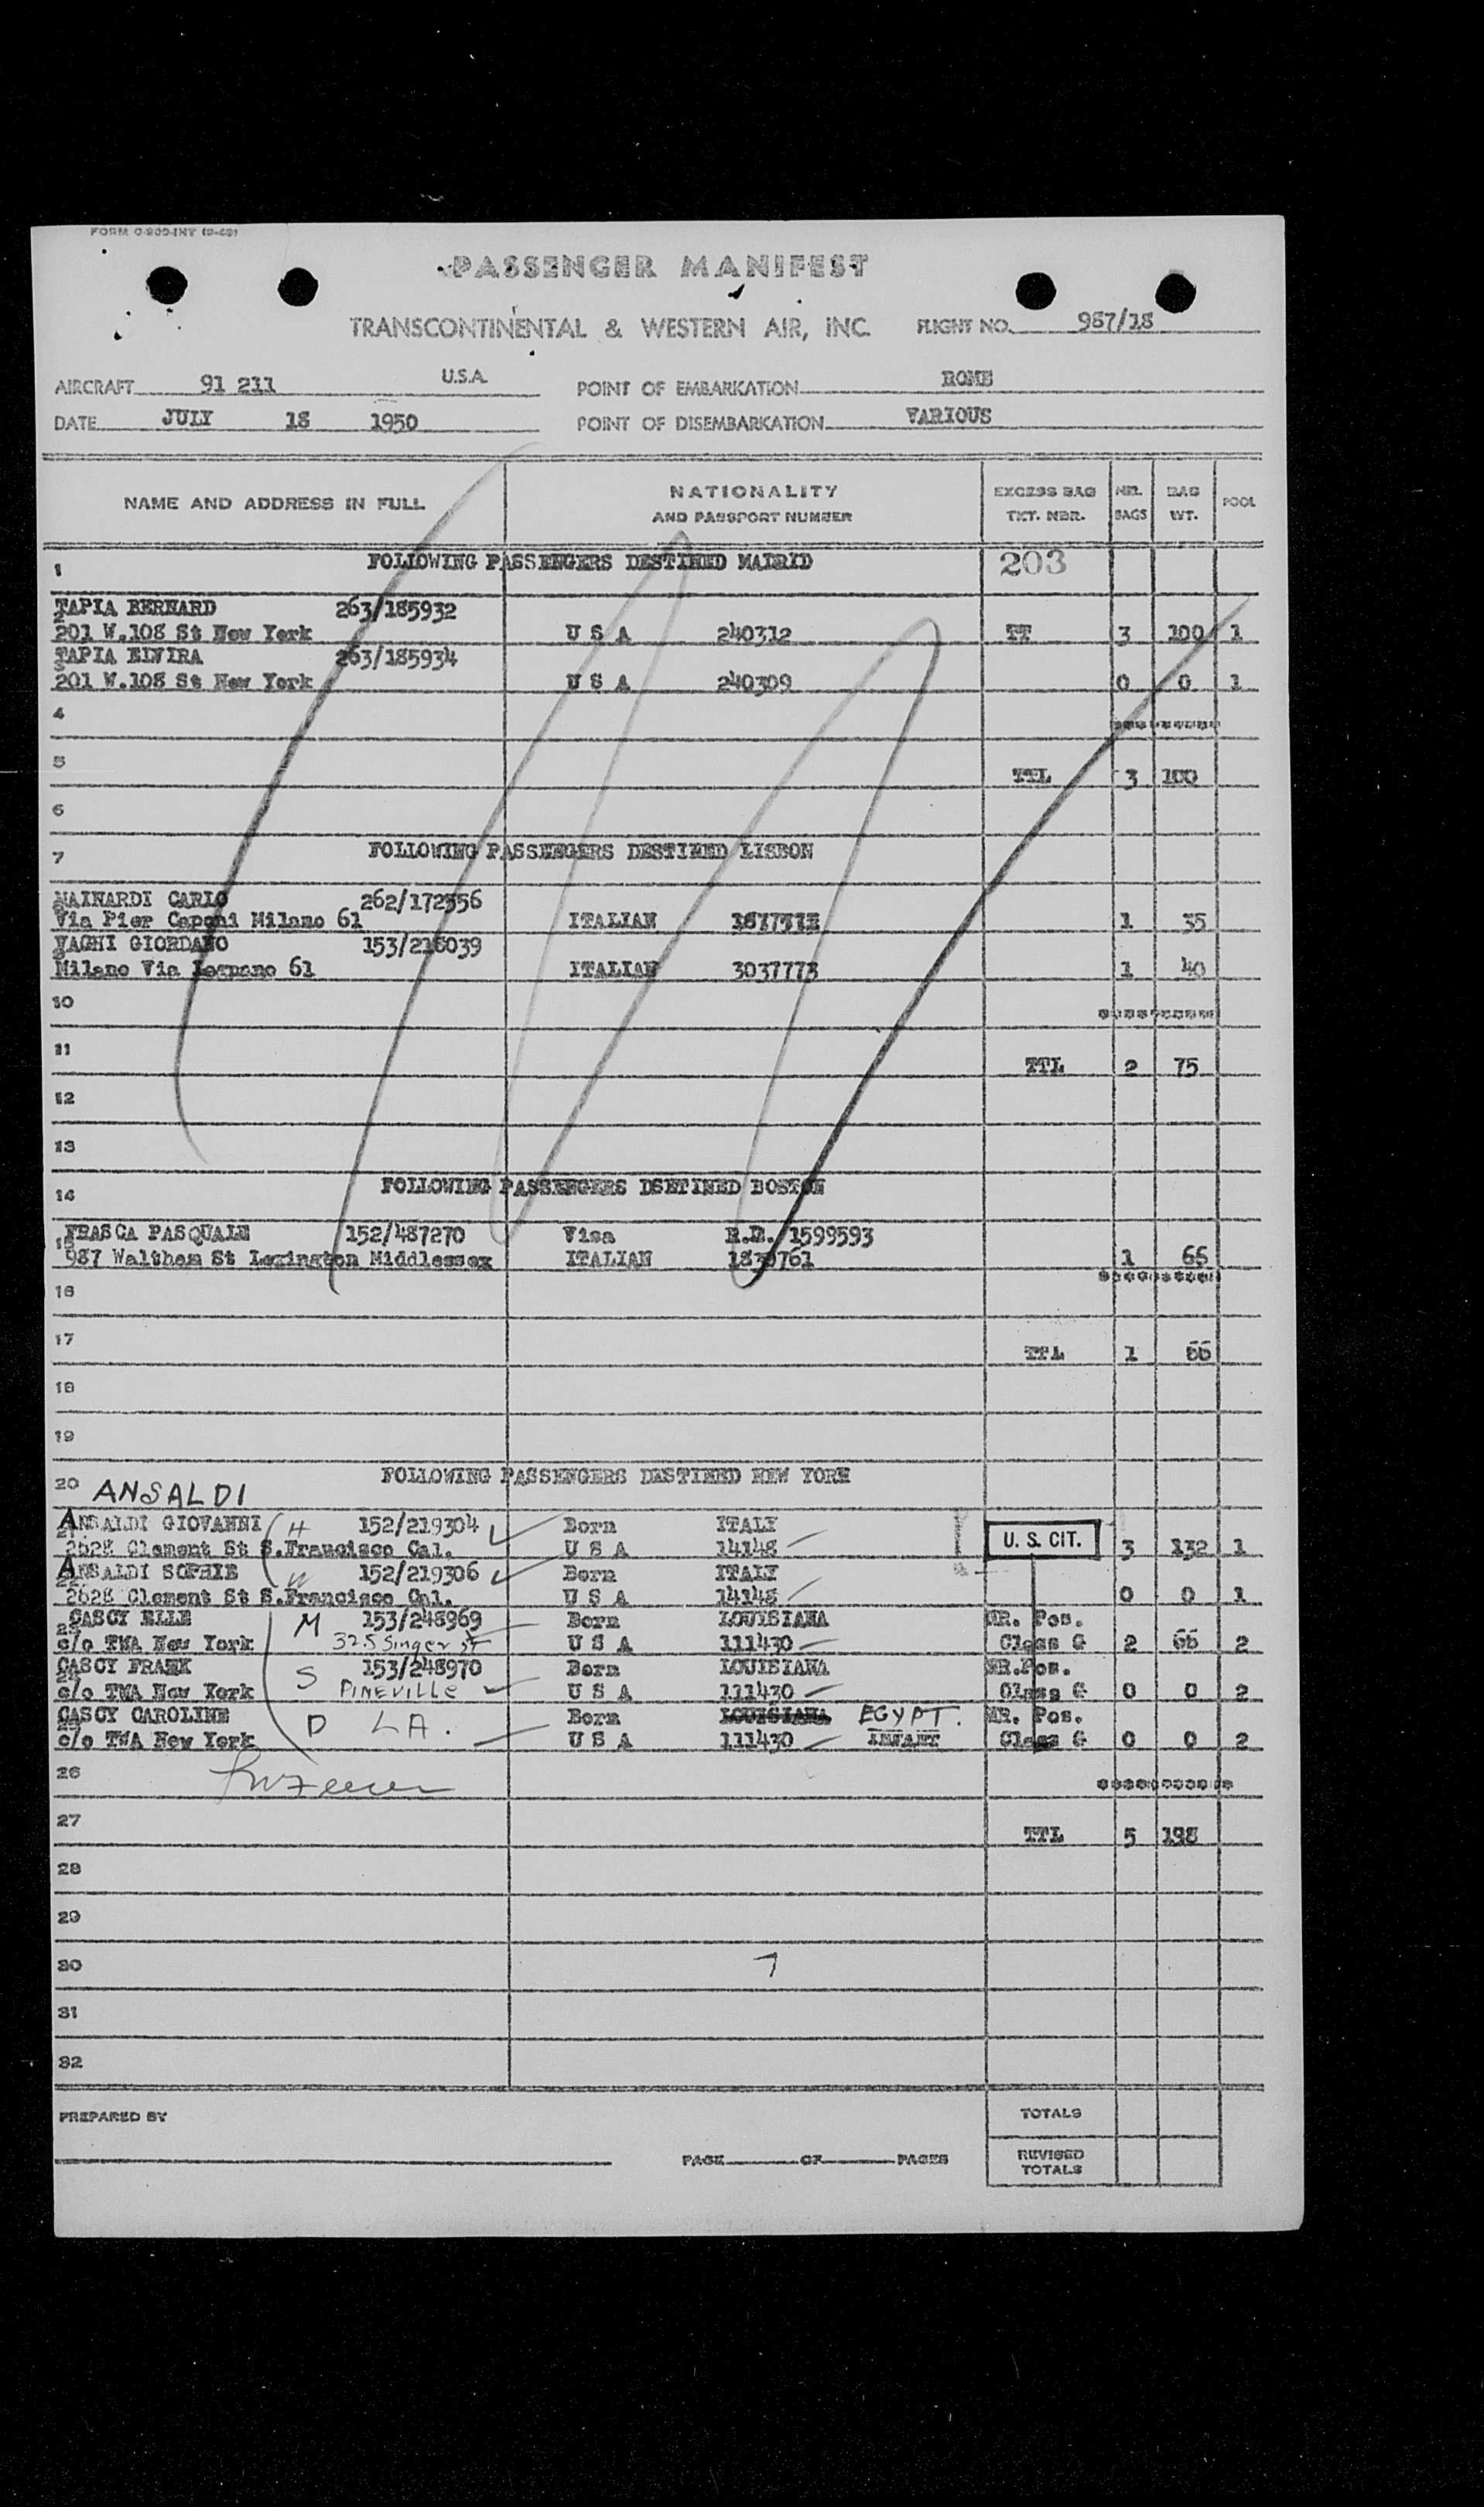 FORM O-200-INT (9-49)
PASSENGER MANIFEST
TRANSCONTINENTAL & WESTERN AIR, INC. FLIGHT NO. 987/18
AIRCRAFT 91 211 U.S.A. POINT OF EMBARKATION ROME
DATE JULY 18 1950 POINT OF DISEMBARKATION VARIOUS
NAME AND ADDRESS IN FULL NATIONALITY AND PASSPORT NUMBER EXCESS BAG TKT. NBR. NBR. BAGS BAG WT. POOL
1 FOLLOWING PASSENGERS DESTINED MADRID 203
TAPIA BERNARD 263/185932
201 W.108 St New York U S A 240312 TT 3 100 1
TAPIA ELVIRA 263/185934
201 W.108 St New York U S A 240309 0 0 1
4 **********
5 TTL 3 100
6
7 FOLLOWING PASSENGERS DESTINED LISBON
MAINARDI CARLO 262/172556
Via Pier Caponi Milano 61 ITALIAN 1 35
VAGHI GIORDANO 153/216039
Milano Via Legnano 61 ITALIAN 3037773 1 40
10 **********
11 TTL 2 75
12
13
14 FOLLOWING PASSENGERS DSETINED BOSTON
FRASCA PASQUALE 152/487270 Visa R.E. 1599593
987 Waltham St Lexington Middlessex ITALIAN 1830761 1 66
**********
16
17 TTL 1 66
18
19
20 FOLLOWING PASSENGERS DESTINED NEW YORK
ANSALDI
ANSALDI GIOVANNI H 152/219304 Born ITALY
2628 Clement St S.Francisco Cal. U S A 14148 U. S. CIT. 3 132 1
ANSALDI SOPHIE W 152/219306 Born ITALY
2628 Clement St S.Francisco Cal. U S A 14148 0 0 1
CASCY ELLE M 153/248969 Born LOUISIANA MR. Pos.
c/o TWA New York 325 Singer ST U S A 111430 Class G 2 66 2
CASCY FRANK S 153/248970 Born LOUISIANA MR.Pos.
c/o TWA New York PINEVILLE U S A 111430 Class G 0 0 2
CASCY CAROLINE D LA. Born LOUISIANA EGYPT. MR. Pos.
c/o TWA New York U S A 111430 INFANT Class G 0 0 2
26 **********
27 TTL 5 198
28
29
30 7
31
32
PREPARED BY TOTALS
PAGE OF PAGES REVISED TOTALS